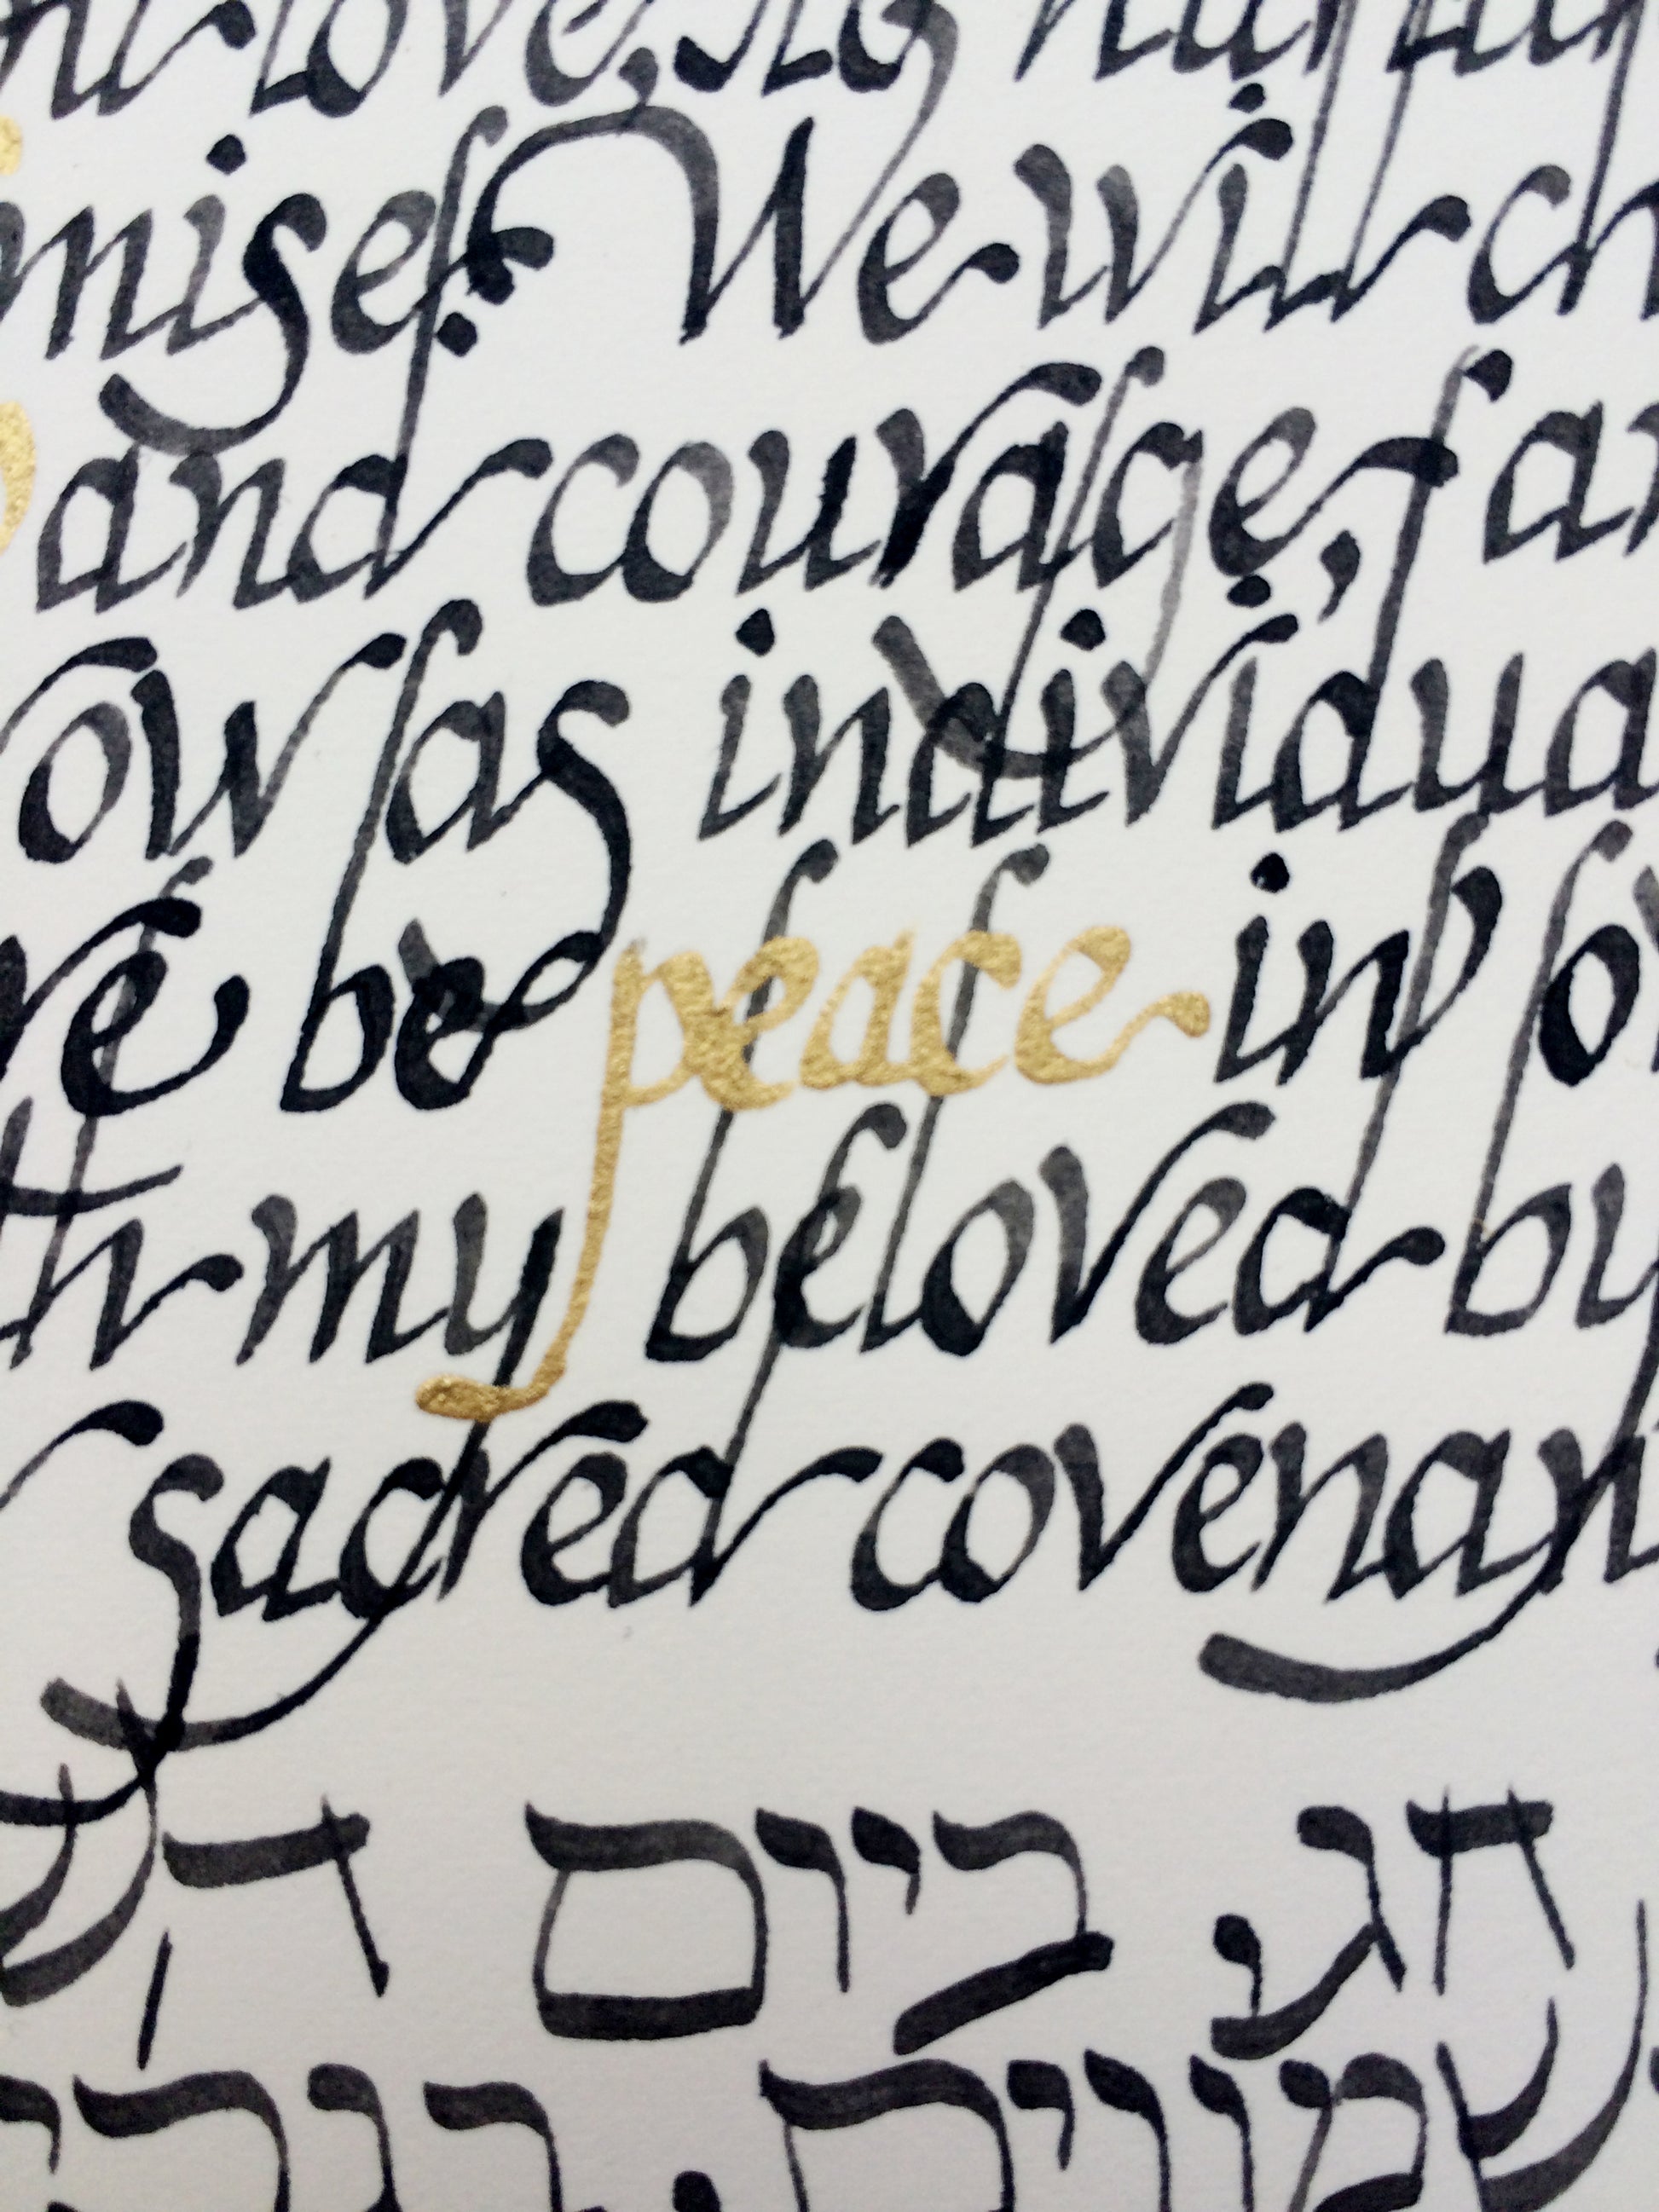 love, no
mises. We will ch
and courage, an
ow as individua
ve be peace in
th my beloved by
sacred covenan
חג. ביום הש